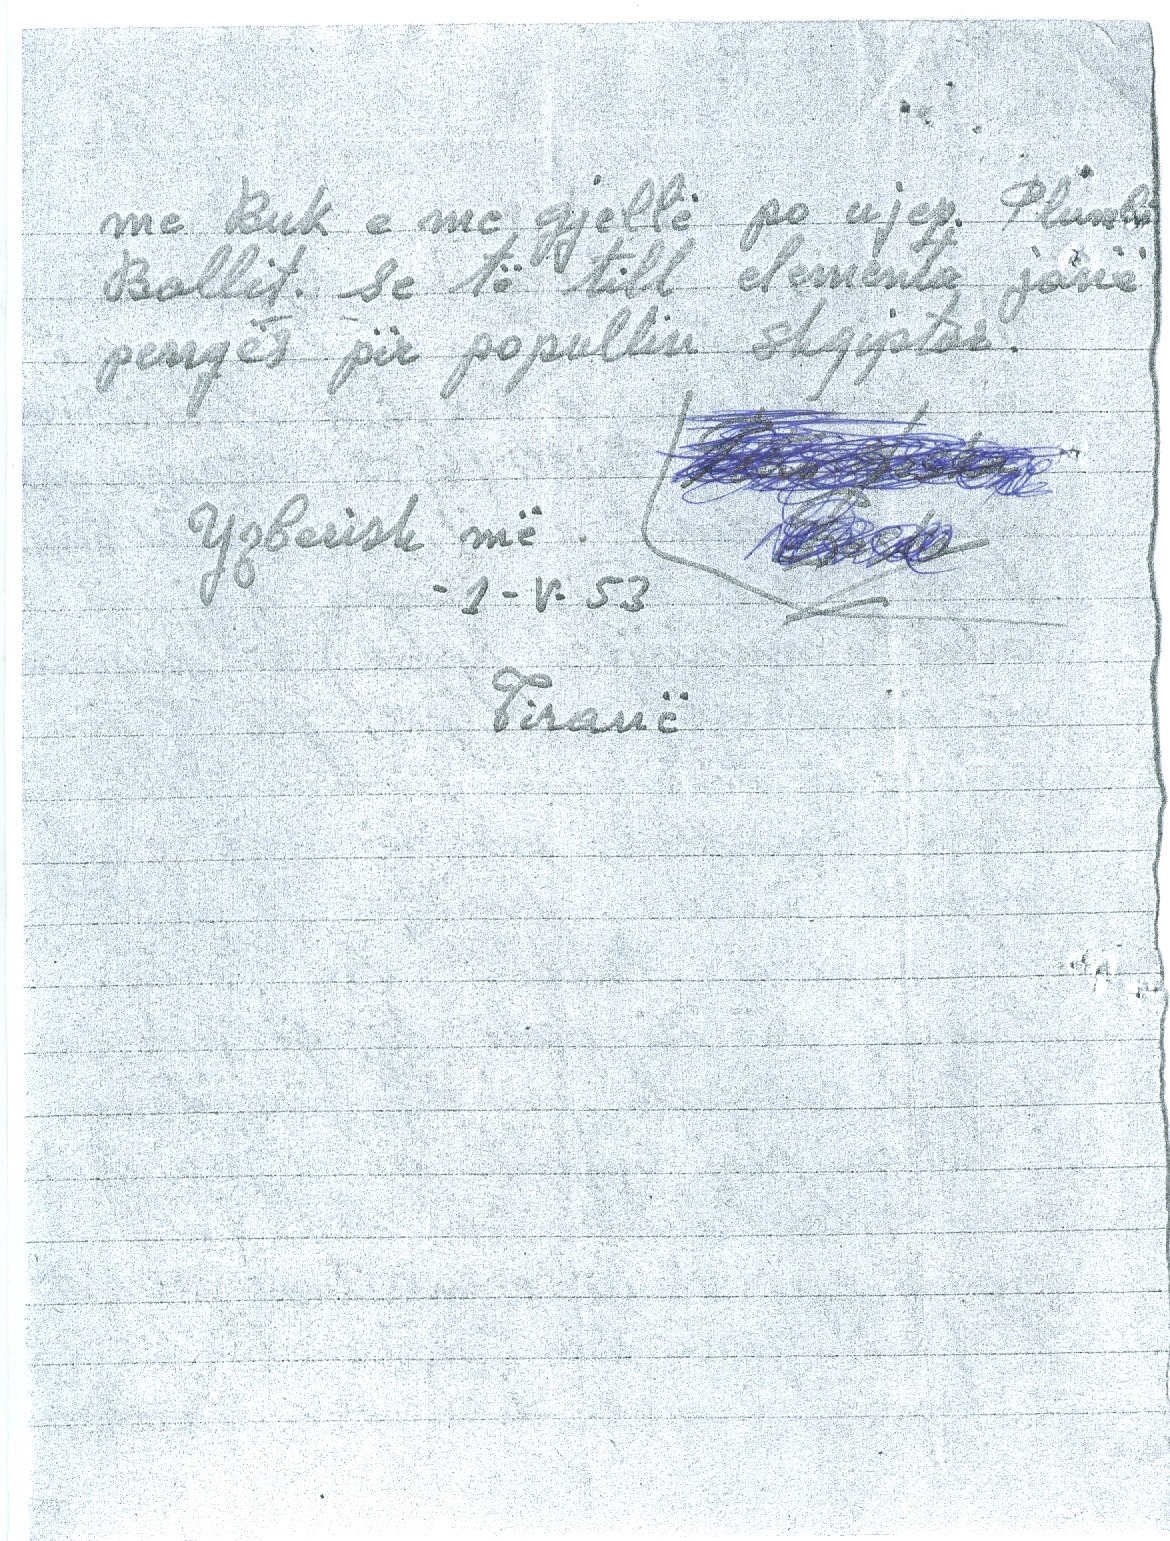 me Buk e me gjellë po ujep. Plumb
Ballit. Se të till elementa janë
pengës për popullin shqiptar.
Yzberish më
-1-V-53
Tiranë